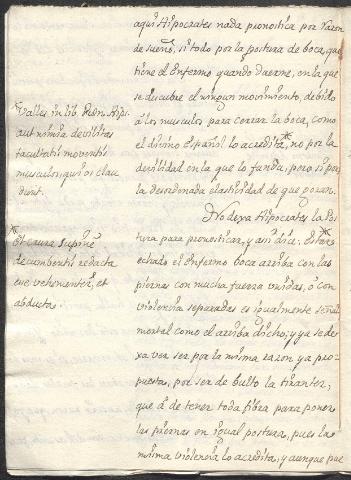 aqui Hipocrates nada pronostica por razon
de sueño, si todo por la postura de boca, que
tiene el enfermo quando duerme, en la que
se descubre el ningun movimiento, debido
à los musculos para cerrar la boca, como
el divino Español lo acredita,* no por la
devilidad en la que lo funda, pero si por
la desordenada elasticidad de que gozan.
No dexa Hipocrates la Pos
tura para pronosticar, y assi dice: Estar*
echado el enfermo boca arriba con las
piernas con mucha fuerza unidas, ò con
violencia separadas es igualmente señal
mortal como el arriba dicho; y ya se de-
xa ver ser por la misma razon ya pro-
puesta, por ser de bulto la tirantez,
que à de tener toda fibra para poner
las piernas en igual postura, pues la
misma violencia lo acredita, y aunque pue
*Valles in lib. Hipi.
aut nimia devilitas
facultatis moventis
musculos, qui os clau
dunt.
*Et crura supine
decumbentis redacta
esse vehementer, et
abducta.